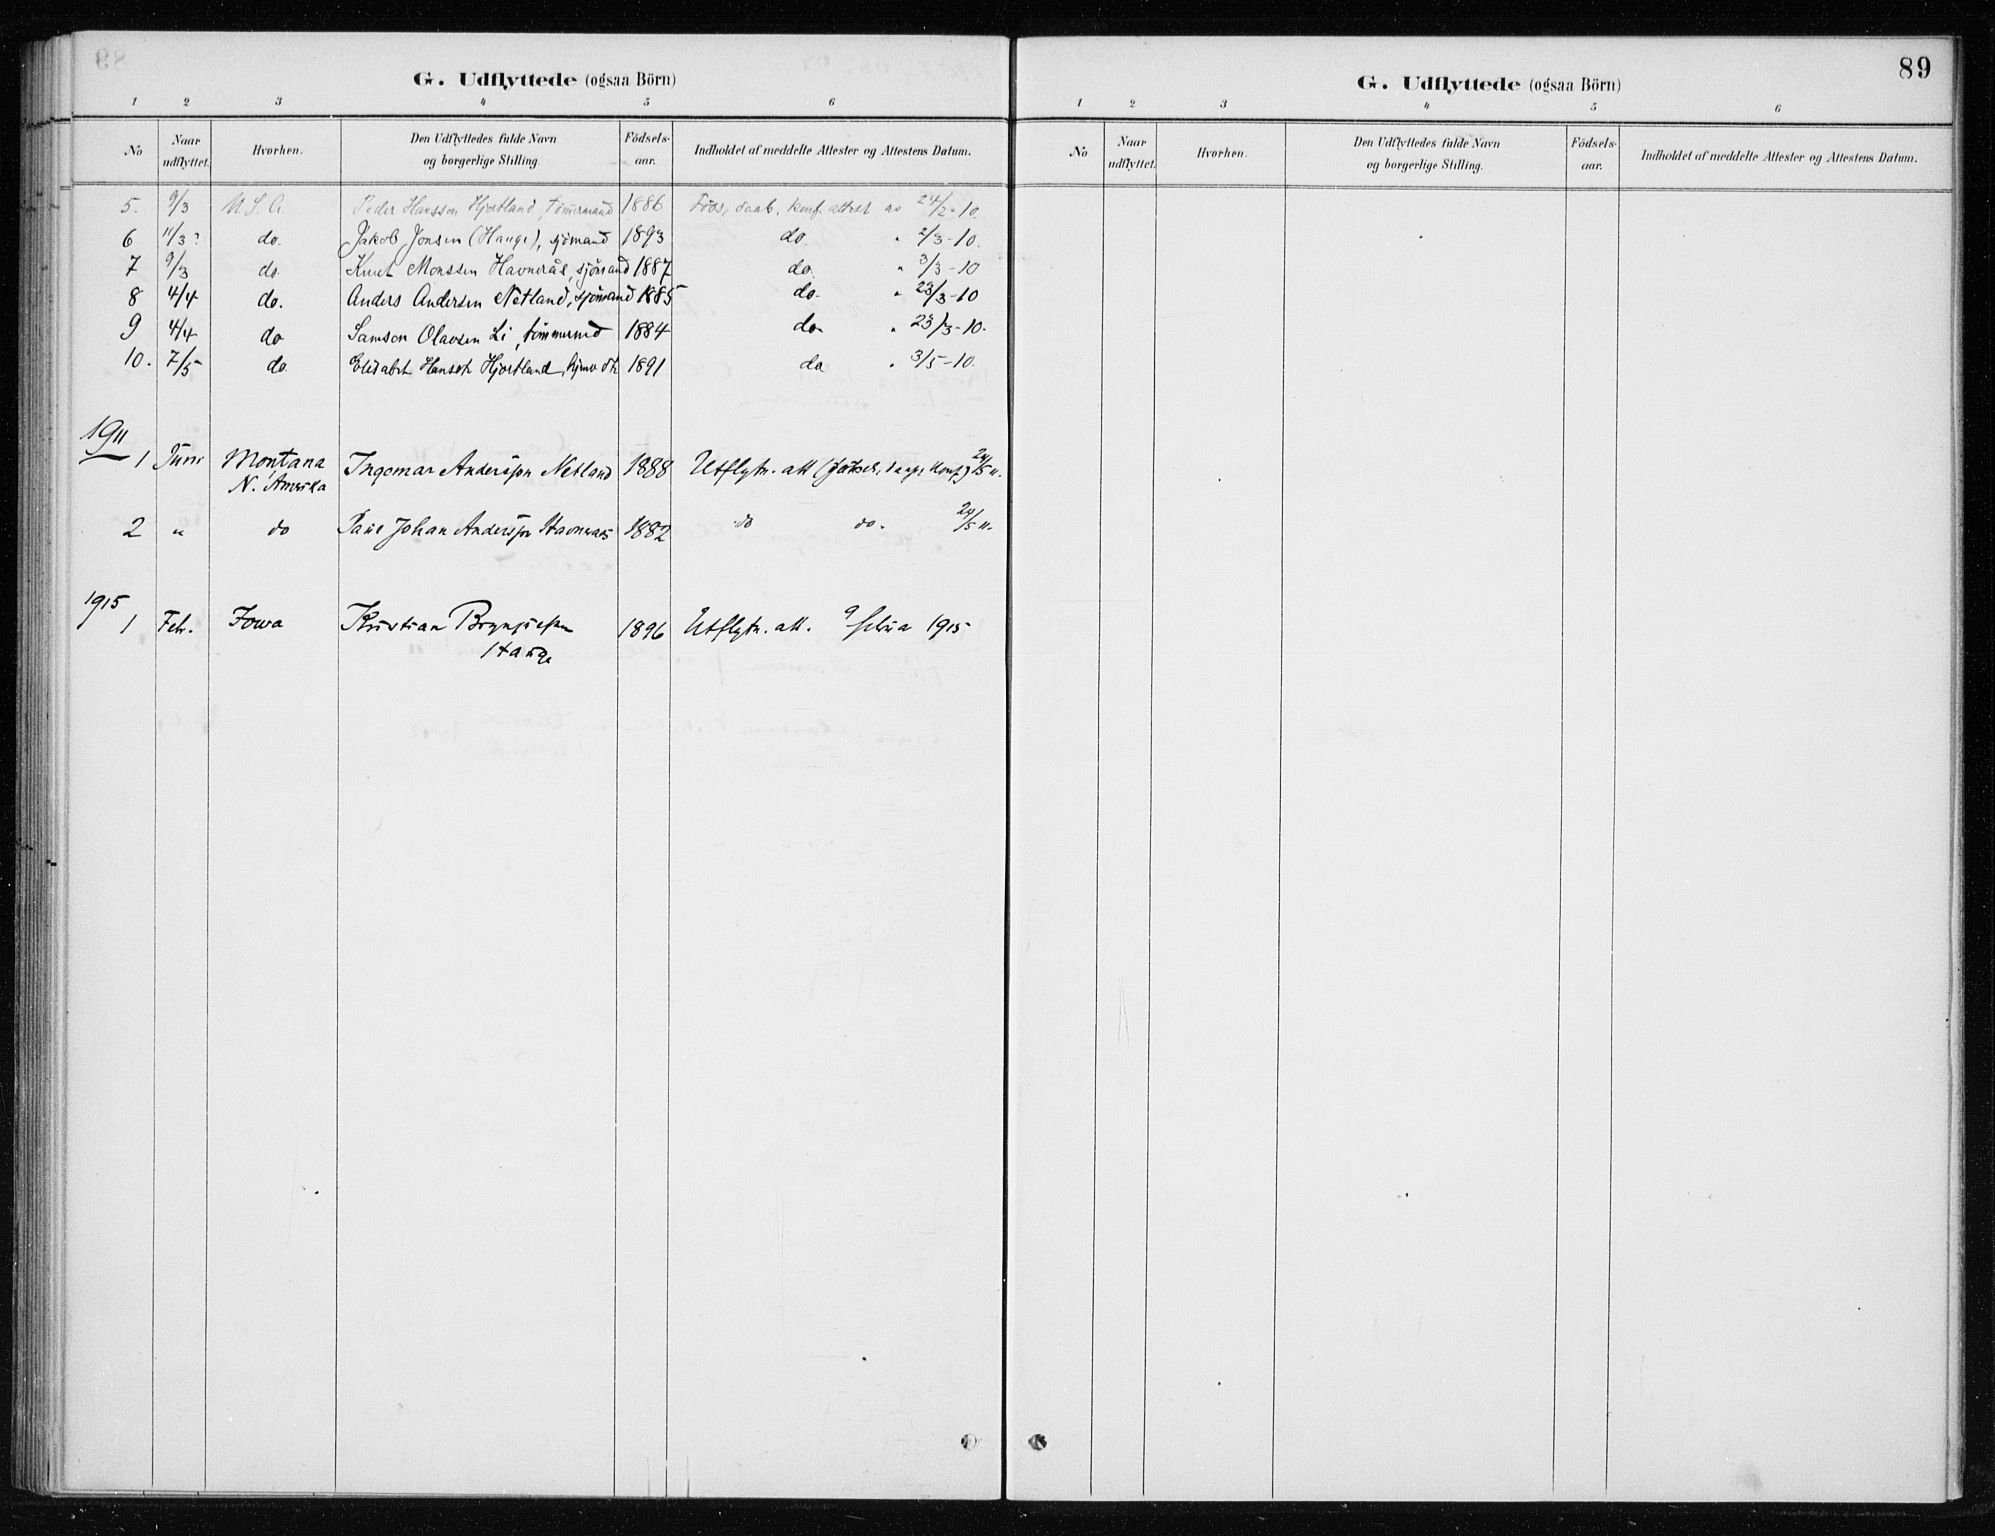 G. Udflyttede (ogsaa Börn)
1 2 3 4 5 6
No Naar udflyttet. Hvorhen. Den Udflyttedes fulde Navn og borgerlige Stilling. Födsels-aar. Indholdet af meddelte Attester og Attestens Datum.
5. 9/3 U.S.A. Peder Hansson Hjortland, tömermand 1886 konf. attest av 24/2-10.
6 11/3? do. Jakob Jonsen (Hauge), sjömand 1893 do " 2/3-10.
7 9/3 do. Knut Monssen Havnerås, sjömand 1887 do. " 3/3-10
8 4/4 do. Anders Andersen Netland, sjömand 1885 do. " 23/3-10
9 4/4 do Samson Olavsen Li, tömmermd 1884 do. " 23/3-10.
10. 7/5 do. Elisabet Hansdt Hjortland, 1891 do " 3/5-10.
1911
1 Juni Montana Ingomar Andersson Netland 1888 Utflytn. att
N. Amerika
2 " do Johan Andersson Havneraas 1882 do do.
1915
1 Febr. Iowa Kristian Brynjulfsen 1896 Utflytn. att. 9 februar 1915
Hauge
G. Udflyttede (ogsaa Börn)
89
1 2 3 4 5 6
No Naar udflyttet. Hvorhen. Den Udflyttedes fulde Navn og borgerlige Stilling. Födsels-aar. Indholdet af meddelte Attester og Attestens Datum.